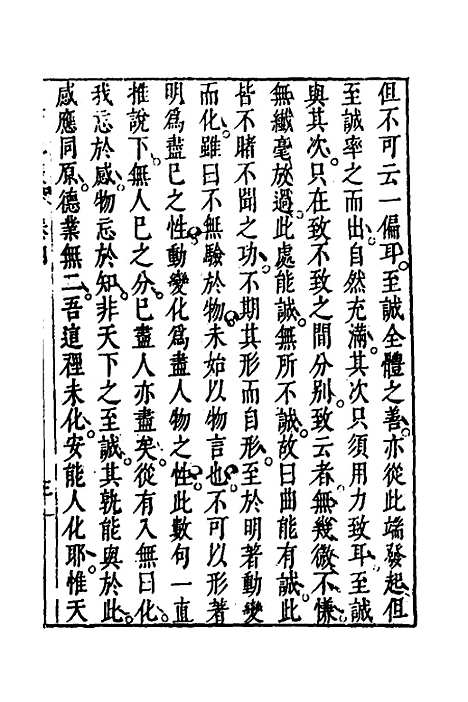 但不可云一偏耳至誠全體之善亦從此端發起但
至誠率之而出自然充滿其次只須用力致耳至誠
與其次只在致不致之間分別致云者無幾微不慊
無纖毫放過此處能誠無所不誠故曰曲能有誠此
皆不睹不聞之功不期其形而自形至於明著動變
而化雖曰不無驗於物未始以物言也不可以形著
明爲盡已之性動變化爲盡人物之性此數句一直
推說下無人已之分已盡人亦盡矣從有入無曰化
我忘於感物忘於知非天下之至誠其孰能與於此
感應同原德業無二吾這裡未化安能人化耶惟天